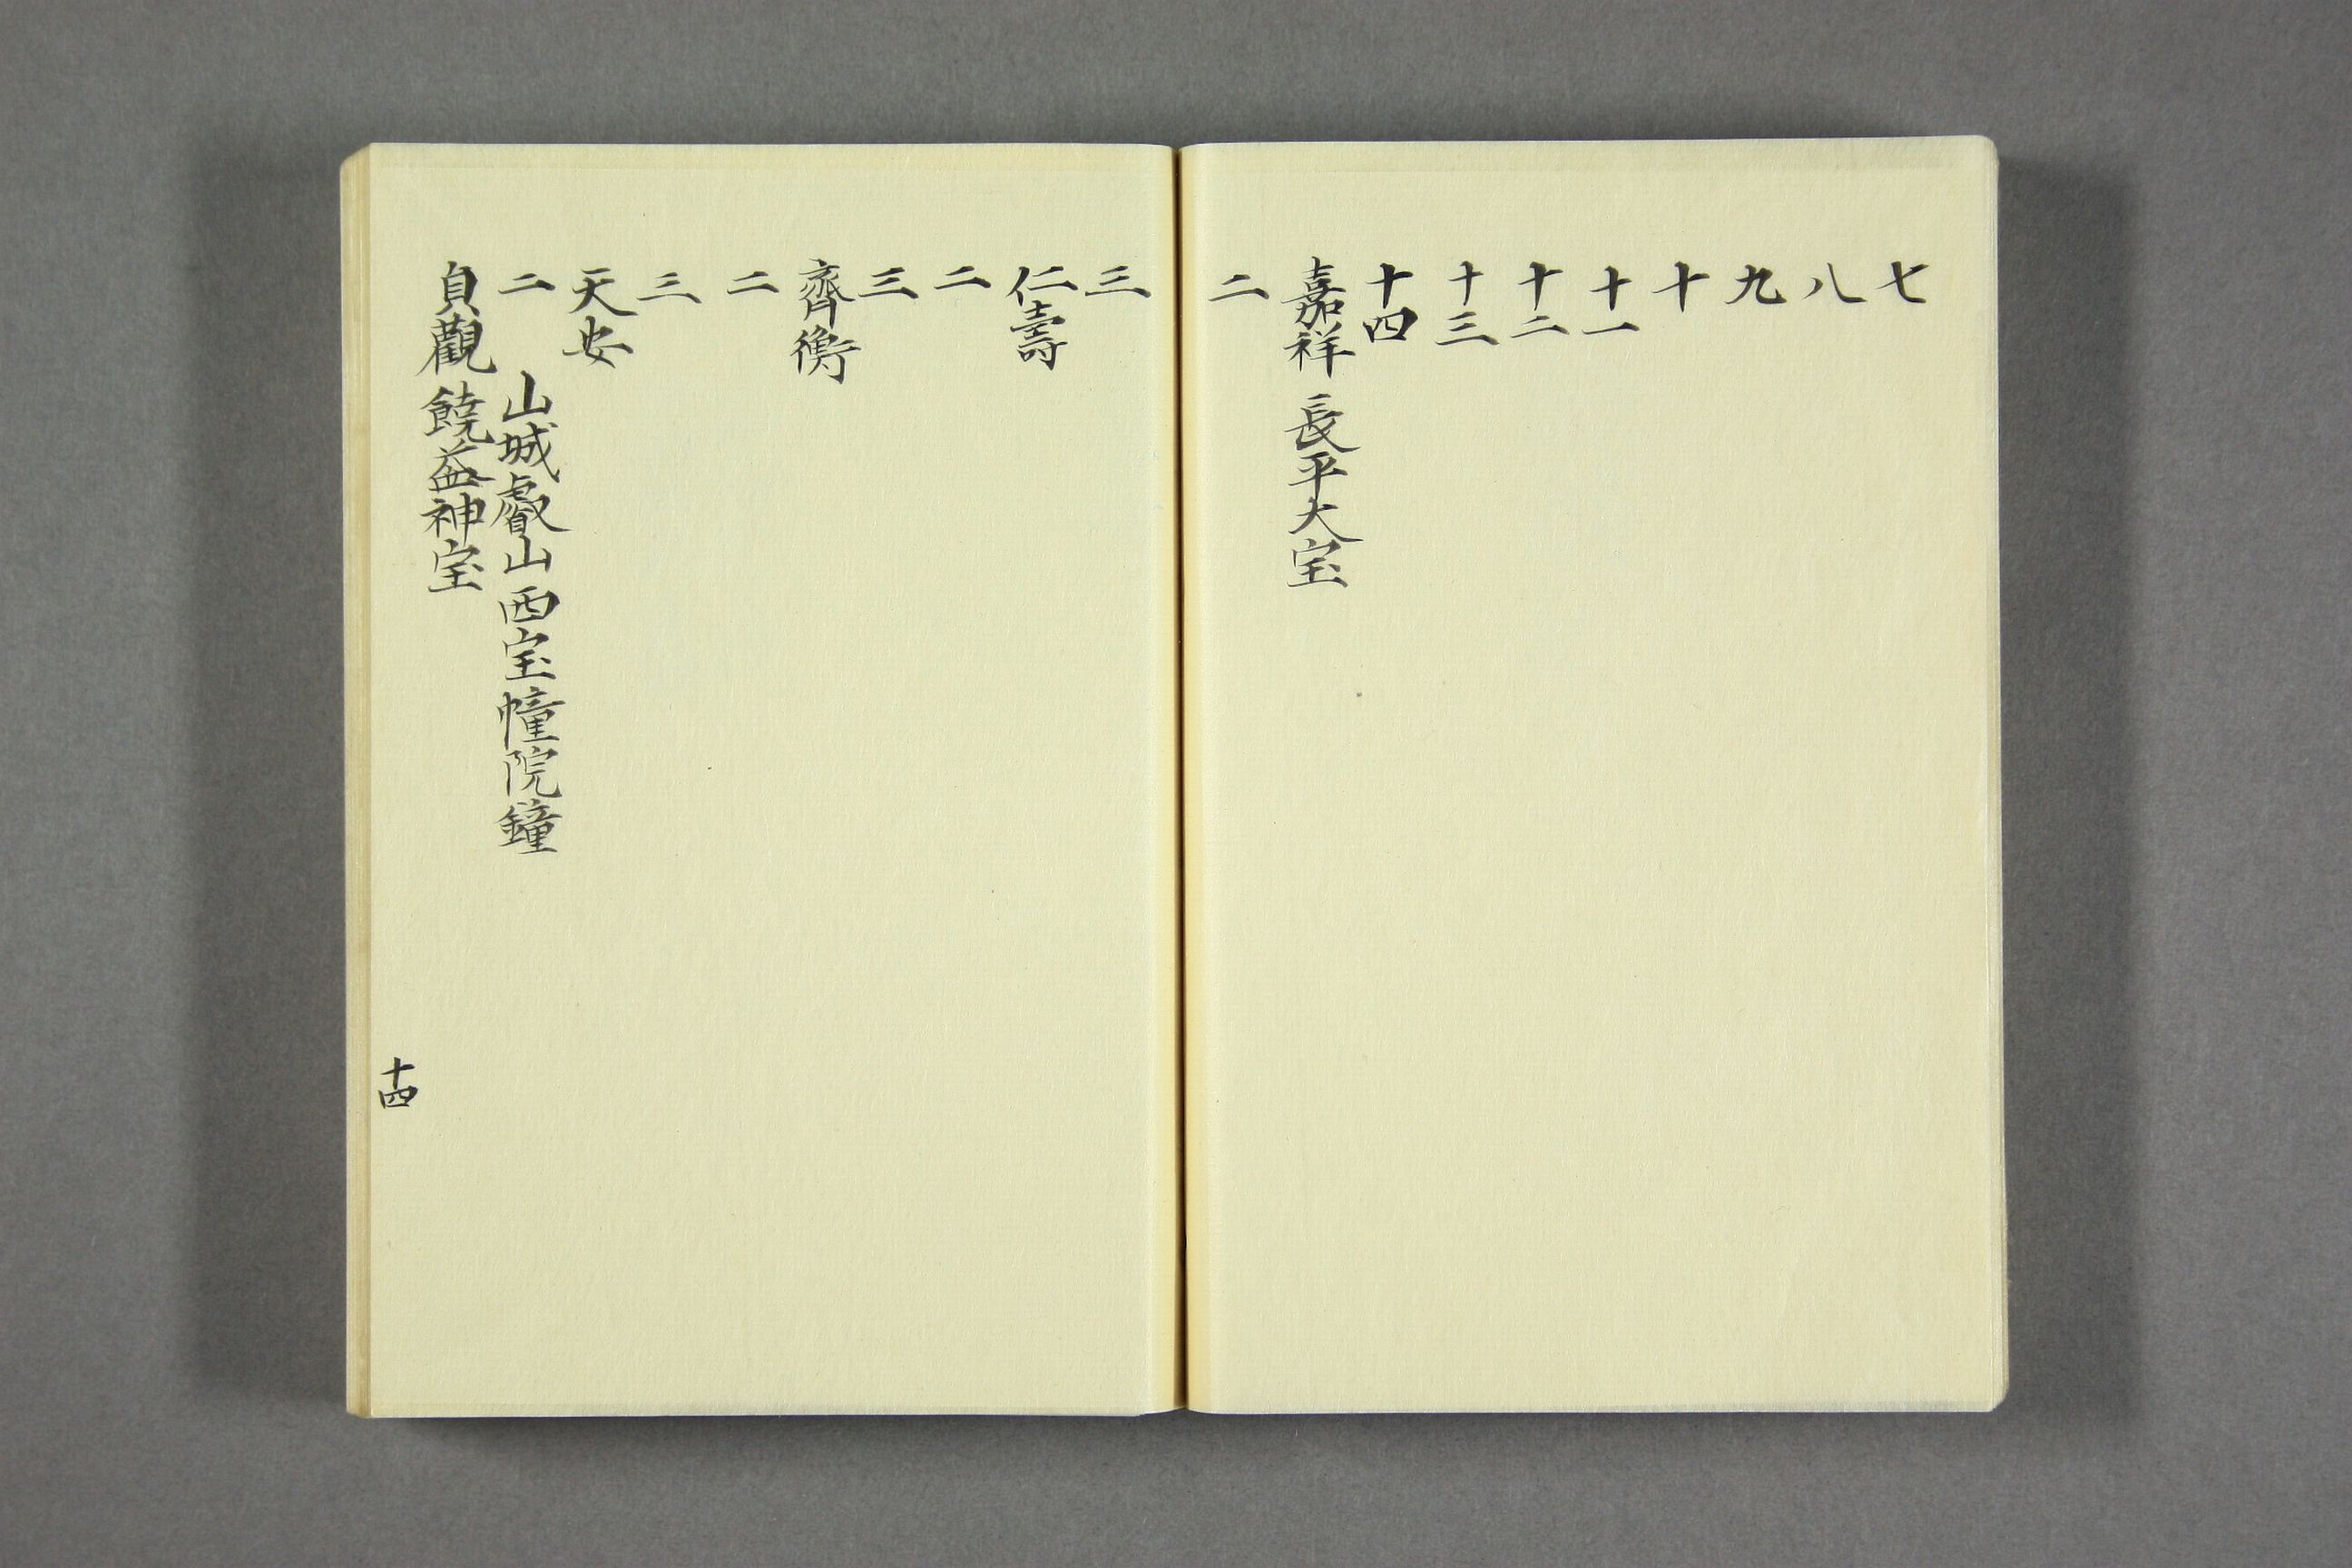 七
八
九
十
十一
十二
十三
十四
嘉祥 長平大宝
二
三
仁壽
二
三
齊衡
二
三
天安
二 山城叡山西宝幢院鐘
貞觀 饒益神宝
十四